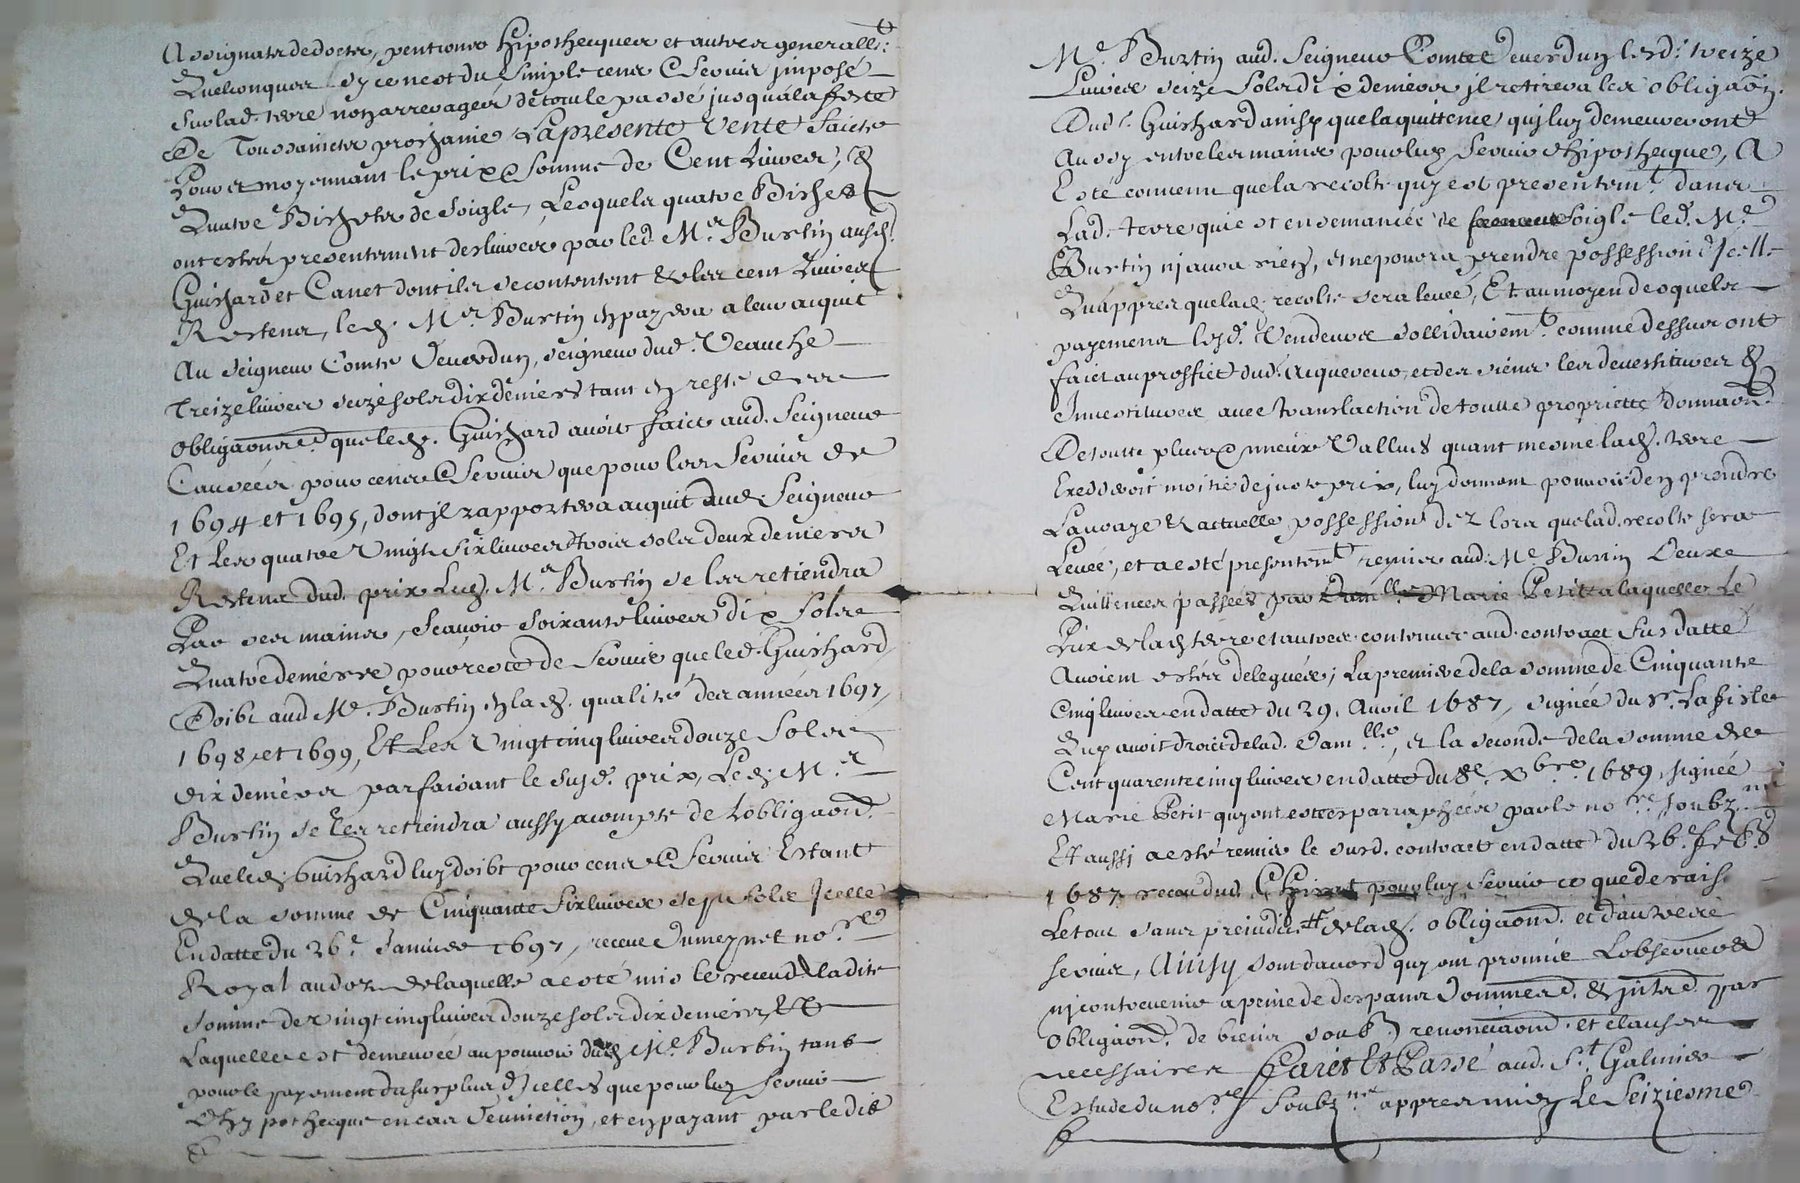 Assignats de doets, pentions hipothecques et autres generallt.
Quelconques sy ce nest du simple cens & servis imposé
sur lad. terre non arreragés de tout le passé jusquà la feste
De Toussaincts prochaine La presente vente faicte
Pour et moyennant le prix & somme de Cent Livres, &
Quatre Bichets de Soigle, Lesquels quatre Bichets
ont estés presentement deslivrés par led. Me. Burtin ausd.
Guichard et Canet dont ils se contentent & les cent Livres
Restens, led. Me. Burtin en payera a leur acquit
Au seigneur Comte deverdun, seigneur dud. Veauche
Treize livres seize sols dix deniers tant en reste des
obligaons. que led. Guichard avoit faict aud. Seigneur
Causées pour cens & servis que pour les servis de
1694 et 1695, dont jl rapportera acquit dud. Seigneur
Et Les quatre Vingt six livres trois sols deux deniers
Restens dud. prix Led. Me. Burtin se les retiendra
Par ses mains, Sçavoir soixante livres dix sols
Quatre deniers pour reste de servis que led. Guichard
Doibt aud. Me. Burtin en lad. qualité des années 1697,
1698, et 1699, Et Les Vingt cinq livres douze sols
dix deniers parfaisant le susd. prix, Led. Me.
Burtin se les retiendra aussy acompte de Lobligaon.
Queled. Guichard luy doibt pour cens & servis Estant
de la somme de Cinquante six livres sept sols Jcelle
En datte du 26e. Janvier 1697, receue Dumeynet nore.
Royal au dos de laquelle a esté mis le receu de ladite
somme de vingt cinq livres douze sols dix deniers, &
Laquelle est demeurée au pouvoir dud. Me. Burtin tant
pour le payement du surplus dicelle que pour luy servir
Dhypothecque en cas deviction, et en payant par ledit
Me. Burtin aud. Seigneur Comte deverdun lesd. treize
Livres seize Sols dix deniers jl retirera les obligaons.
Dud. Guichard ainsy que la quittence quj luy demeureront
Aussy entre les mains pour luy servir dhipothecque, A
Esté convenu que la recolte quy est presentemt. dans
Lad. terre quie st ensemancée de soigle led. Me.
Burtin nj aura rien, et ne poura prendre possession dJcelle
Quappres que lad. recolte sera levée, Et au moyen desquels
payemens lesd. Vendeurs sollidairemt. comme dessus ont
faict au proffict dud. Acquereur et des siens les devestitures &
Jnvestitures avec translaction de toutte proprietté donnaon.
De toutte plus & mieux Vallues quant mesme lad. terre
Exedderoit moitié de juste prix, luy donnent pouvoir den prendre
La vraye & actuelle possession dez lors que lad. recolte sera
Levée, et a esté presentemt. remis aud. Me. Burtin Deuxe
Quittences passées par Damlle Marie Petit a laquelle Le
Prix de lad. terre et autres contenus aud. contract sus datté
Avoient estés delegués, La premiere de la somme de Cinquante
Cinq livres en datte du 29. Avril 1687, signée du sr. Lafiste
Quy avoit droict de lad. Damlle., et la seconde de la somme de
Cent quarente cinq livres en datte du 8e. Xbre. 1689, signée
Marie Petit quj ont estées parraphées par le nore. soubzné.
Et aussi a esté remis le susd. contract en datté du 26.
1687 receu dud. pour luy servir ce que de raison
Le tout sans preiudice de lad. obligaon. et dautres
servis, Ainsy sont daccord quy ont promis Lobserver &
nj contrevenir a peine de despans dommes. & intrs. par
obligaon. de biens soubzn renonciaons. et clauses
necessaires Faict Et Passé aud. St. Galmier
Estude du nore. soubzné. appres midy Le Seiziesme